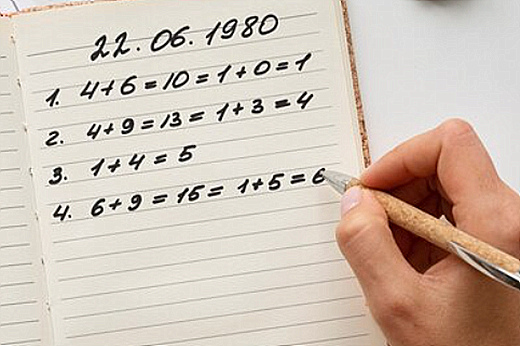 22.06.1980
1. 4+6=10=1+0=1
2. 4+9=13=1+3=4
3. 1+4=5
4. 6+9=15=1+5=6